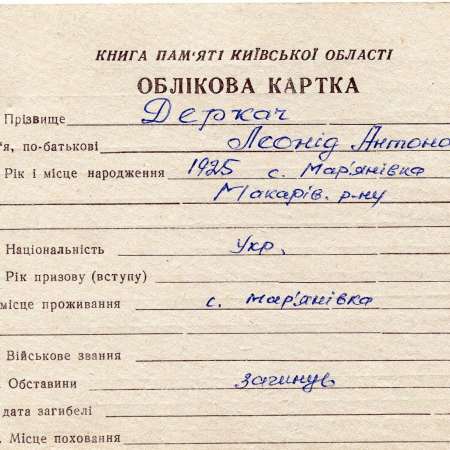 КНИГА ПАМ'ЯТІ КИЇВСЬКОЇ ОБЛАСТІ
ОБЛІКОВА КАРТКА
Прізвище Деркач
'я, по-батькові Леонід Антоно
Рік і місце народження 1925 с. Мар'янівка
Макарів. р-ну
Національність Укр.
Рік призову (вступу)
місце проживання с. Мар'янівка
Військове звання
. Обставини загинув
дата загибелі
. Місце поховання